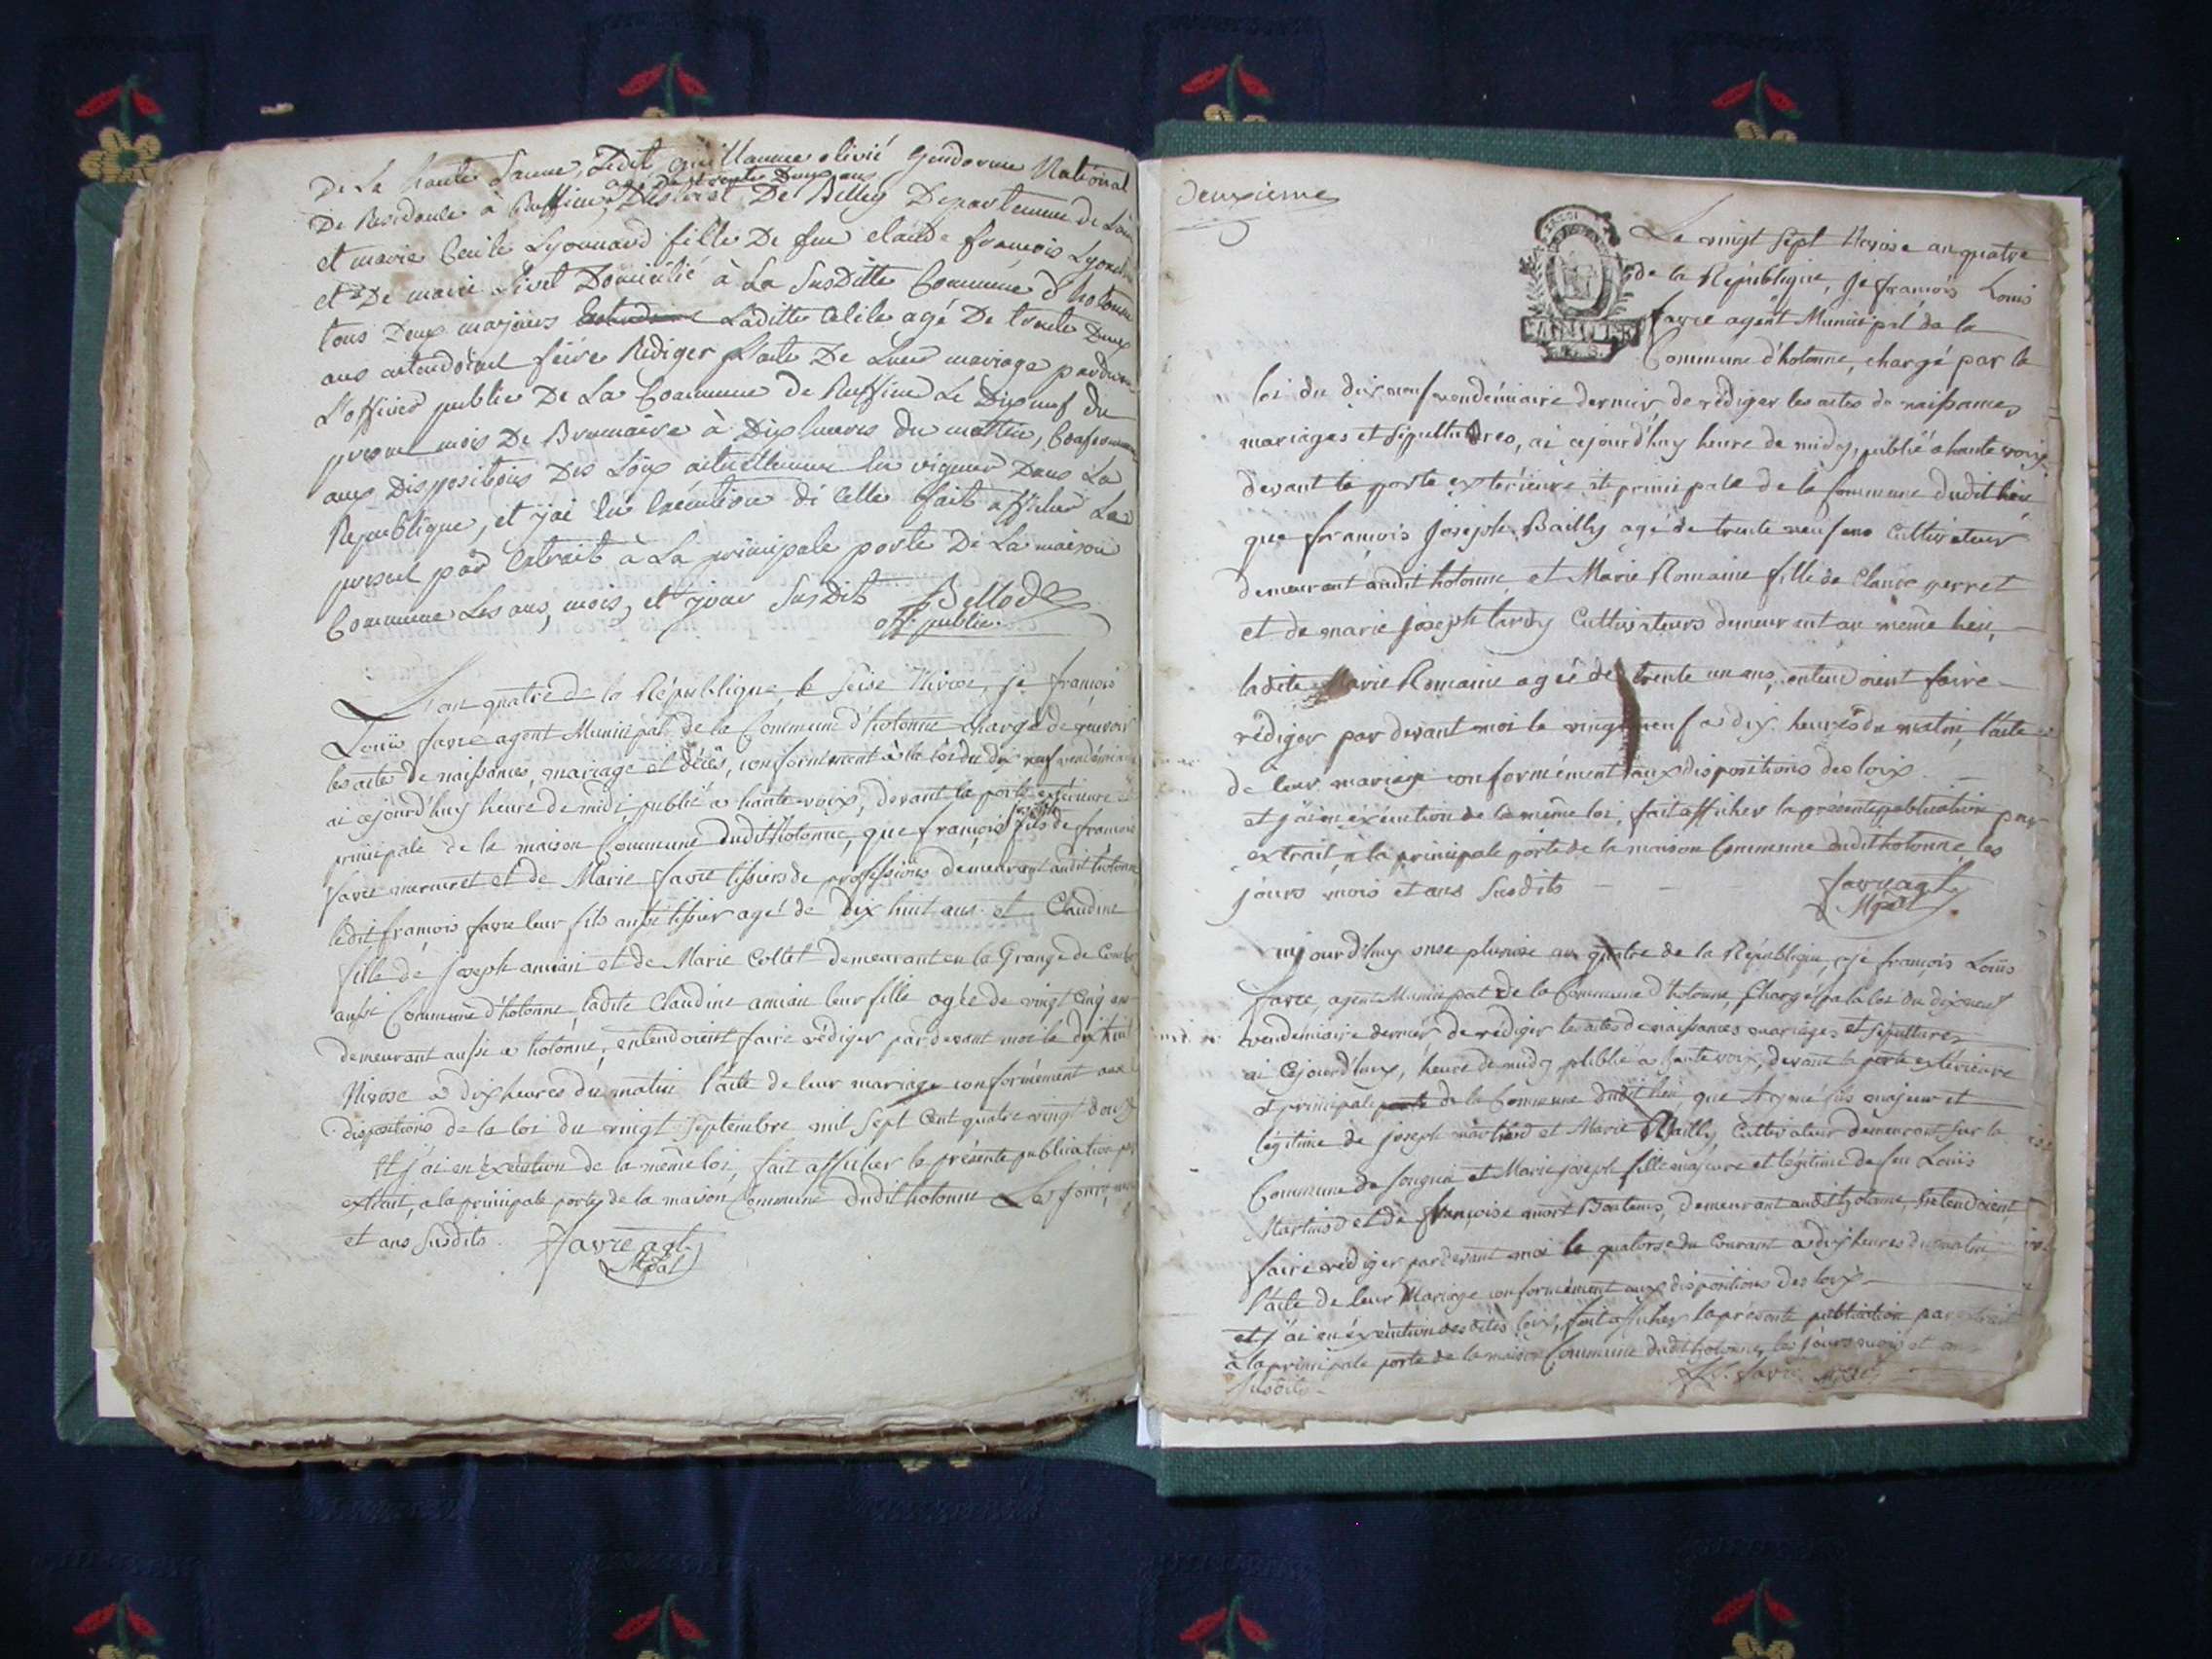 De La haute Saune, Ledit guillaume olivié Gendarme National
agé de trente Deux ans
De Residence à Ruffieu, District De Belley Departement de L'ain
et marie Cecile Lyonnard fille De feu claude françois
et De marie Livet Domicilié à La Susditte Commune d'hotonne
tous Deux majeurs Laditte Celile agé De trente Deux
ans entendoient faire Rediger l'acte De Leur mariage
L'officier public De La Commune de Ruffieu Le Dixneuf du
present mois De Brumaire à Dix heures du mattin,
aux Dispositions Des Loix actuellement En vigueur Dans La
Republique, et j'ai En Execution de Celle fait afficher Le
present par Extrait à La principale porte De La maison
Commune Les ans, mois, et jour Susdits Bellod
off. public
L'an quatre de la République le Seise Nivose, je françois
Louis favre agent Municipal de la Commune d'hotonne chargé de recevoir
les actes de naissances, mariage et décès, conformément à la loi du dix neuf vendémiaire
ai cejourd'huy heure de midi, publié a haute voix, devant la porte extérieure
principale de la maison Commune dudit hotonne, que françois fils de françois
favre mermet et de Marie favre tissiers de professions demeurant audit hotonne
ledit françois favre leur fils aussi tissier agé de Dix huit ans et Claudine
fille de joseph ancian et de Marie Collet demeurant en la Grange de
aussi Commune d'hotonne, ladite Claudine ancian leur fille agée de vingt Cinq ans
demeurant aussi a hotonne, entendoient faire rédiger par devant moi le dix huit
Nivose a dix heures du matin l'acte de leur mariage conformément aux
dispositions de la loi du vingt Septembre mil Sept Cent quatre vingt douze
Et j'ai en éxécution de la même loi, fait afficher la présente publication par
extrait, a la principale porte de la maison Commune dudit hotonne Les jours, mois
et ans susdits. favre agt.
Mpal
Deuxieme
Le vingt Sept Nivose an quatre
de la République, Je françois Louis
favre agent Municipal de la
Commune d'hotonne, chargé par la
loi du dix neuf vendémiaire dernier, de rédiger les actes de naissances
mariages et sépultures, ai cejourd'huy heure de midy, publié a haute voix
devant la porte extérieure et principale de la Commune dudit lieu,
que françois Joseph Bailly agé de trente neuf ans Cultivateur
demeurant audit hotonne et Marie Romaine fille de Claude perret
et de marie joseph tardy Cultivateurs demeurant au même lieu,
ladite Marie Romaine agée de trente un ans, entendoient faire
rédiger par devant moi le vingt neuf a dix heures du matin, l'acte
de leur mariage conformément aux dispositions des loix
et j'ai en éxécution de la même loi, fait afficher la présente publication par
extrait, a la principale porte de la maison Commune dudit hotonne, les
jours mois et ans Susdits favre agt.
Mpal
Aujourd'huy onse pluviose an quatre de la République, je françois Louis
favre, agent Municipal de la Commune d'hotonne, Chargé par la loi du dix neuf
vendemiaire dernier de rédiger les actes de naissances mariages et sépultures
ai Cejourd'huy, heure de midy publié a haute voix, devant la porte extérieure
et principale porte de la Commune dudit lieu que Aymé fils majeur et
légitime de joseph martinod et Marie Mailly, Cultivateur demeurant sur la
Commune de Songieu et Marie joseph fille majeure et légitime de feu Louis
Martinod et de françoise demeurant audit hotonne, Entendoient
faire rédiger par devant moi le quatorse du Courant a dix heures du matin
l'acte de leur Mariage conformément aux dispositions des loix
et j'ai en éxécution desdites loix, fait afficher la présente publication par extrait
a la principale porte de la maison Commune dudit hotonne, les jours mois et ans
susdits